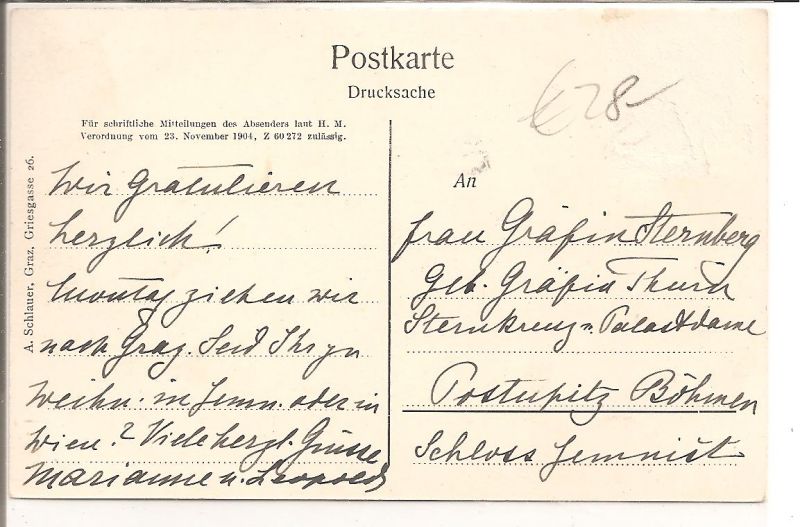 Postkarte
Drucksache
€ 28-
Für schriftliche Mitteilungen des Absenders laut H. M.
Verordnung vom 23. November 1904, Z 60272 zulässig.
A. Schlauer, Graz, Griesgasse 26.
Wir gratulieren
herzlich!
Montag ziehen wir
nach Graz. Seid Ihr zu
Weihn. in Jemn. oder in
Wien? Viele herzl. Grüsse
Marianne u. Leopold
An
Frau Gräfin Sternberg
Geb. Gräfin Thurn
Sternkreuz u. Palastdame
Postupitz Böhmen
Schloss Jemništ